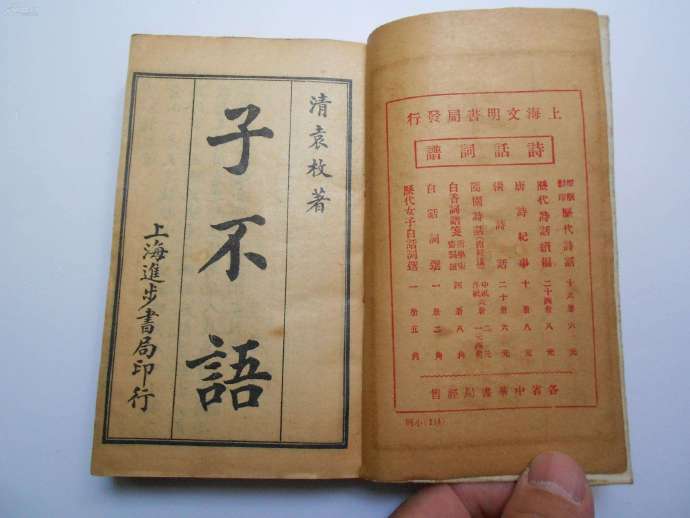 清袁枚著
子不語
上海進步書局印行
上海文明書局發行
詩話詞譜
歷代詩話 十六冊六元
歷代詩話續編 二十四冊八元
唐詩紀事 十冊八元
詩話 二十冊六元
閨閣詩話
白香詞譜箋 四冊八角
白話詞選 一冊二角
歷代女子白話詞選 一冊五角
各省中華書局經售